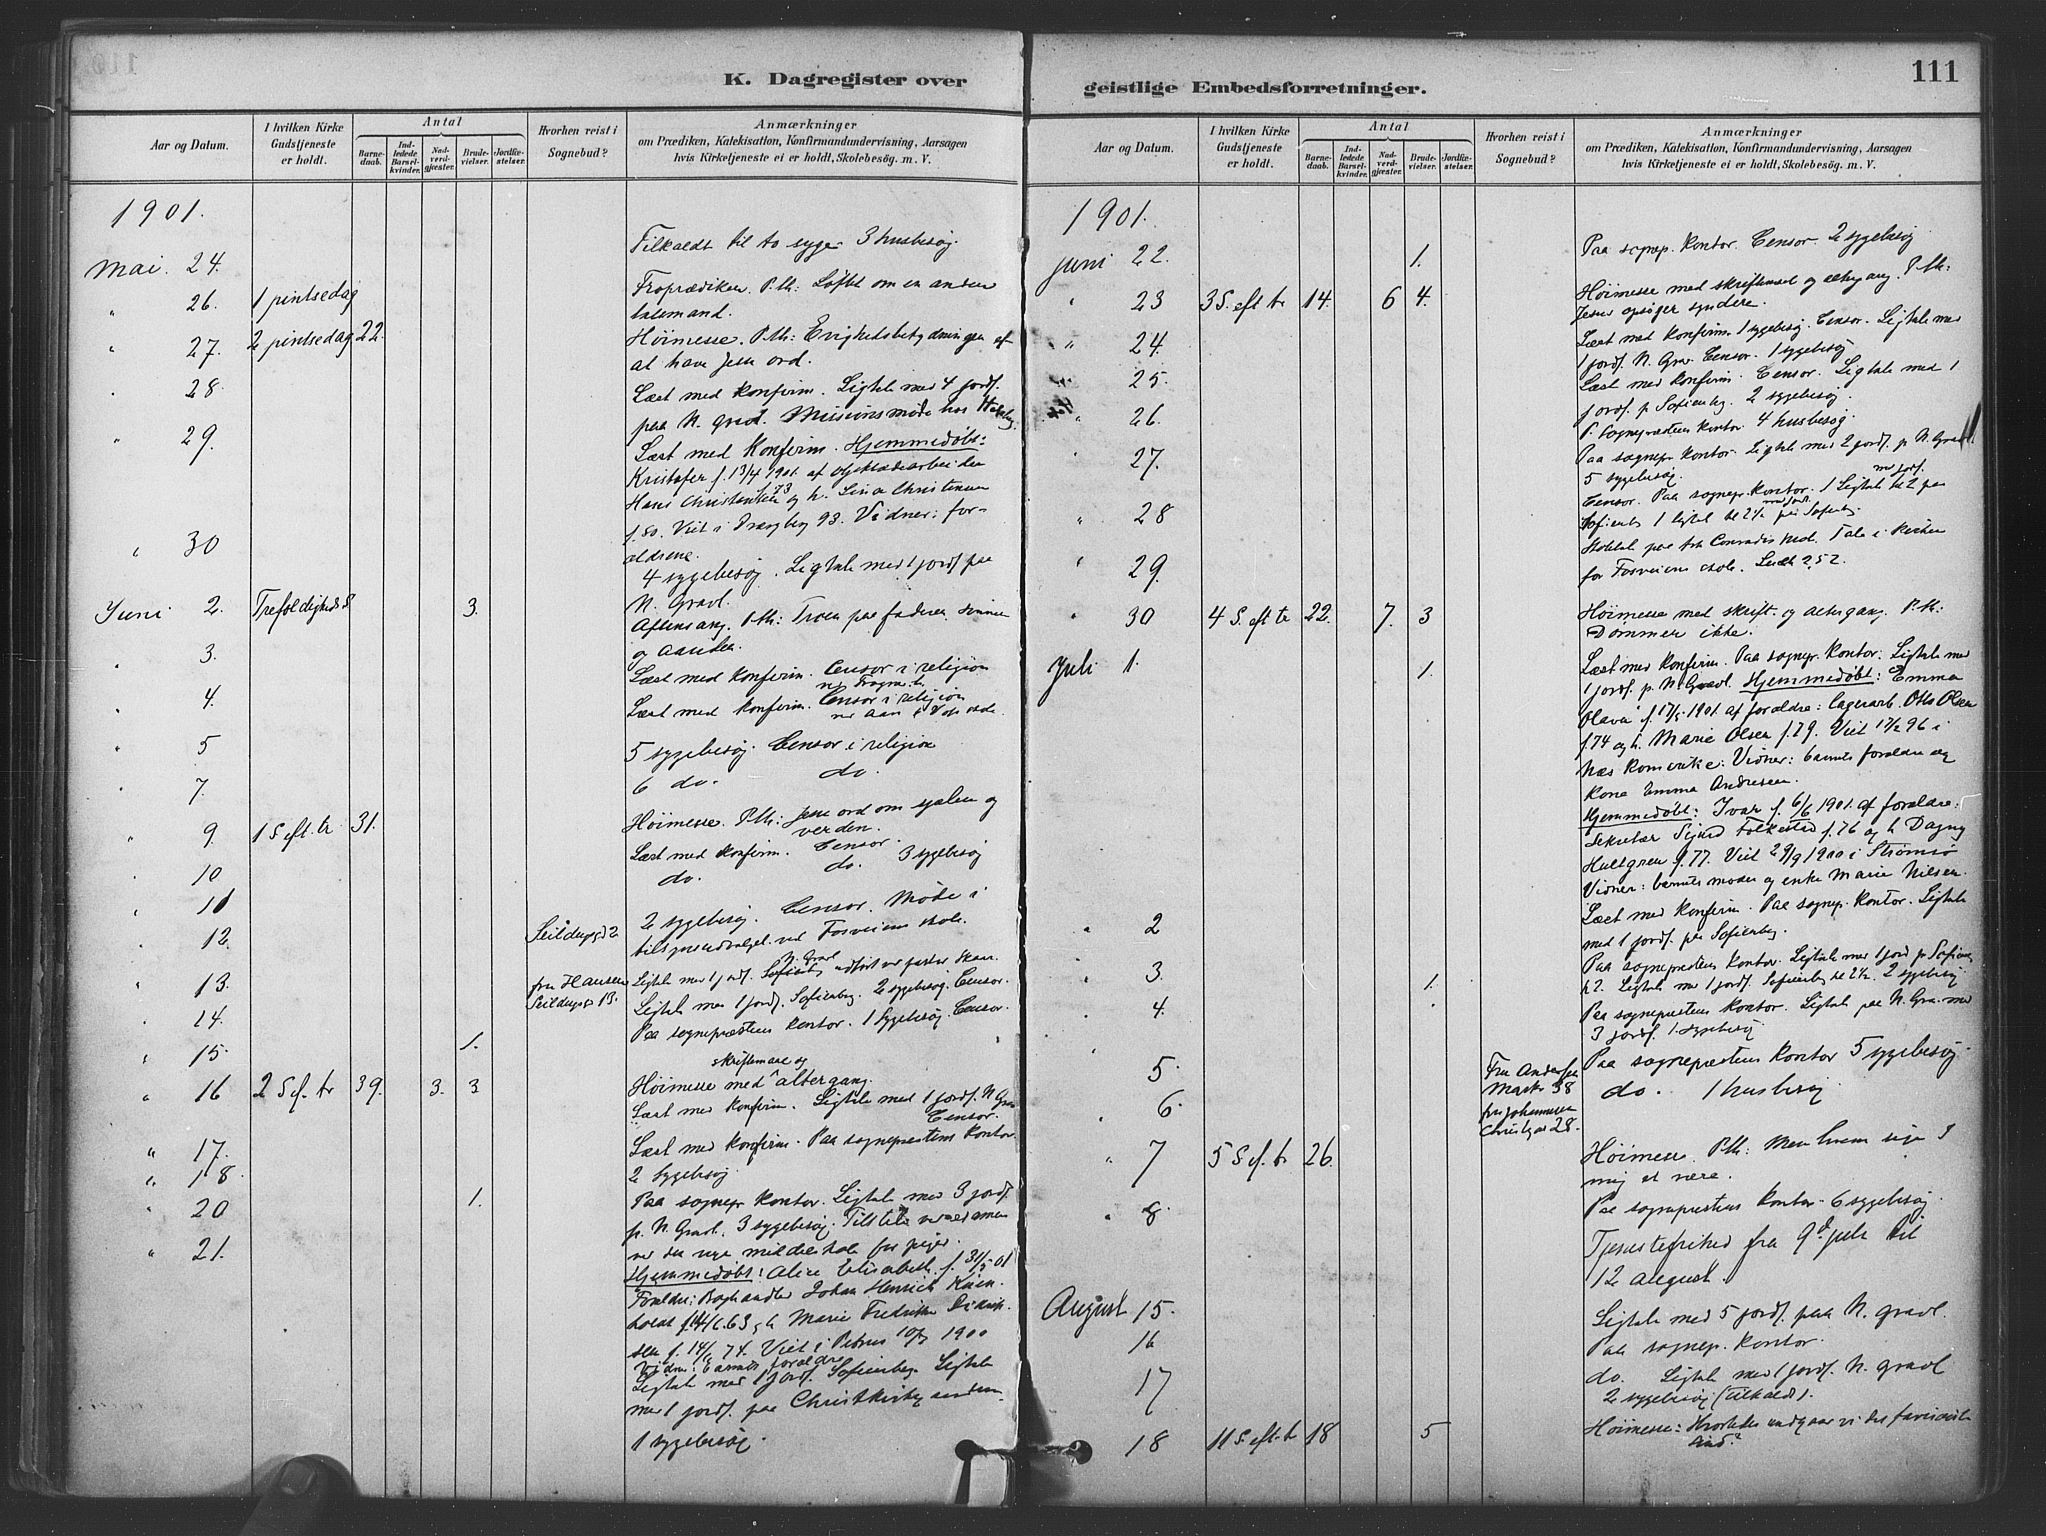 K. Dagregister over
Aar og Datum.
I hvilken Kirke Gudstjeneste er holdt.
Antal
Barnedaab.
Indledede Barselkvinder.
Nadverdgjæster.
Brudevielser.
Jordfæstelser.
Hvorhen reist i Sognebud?
Anmærkninger
om Prædiken, Katekisation, Konfirmandundervisning, Aarsagen
hvis Kirketjeneste ei er holdt, Skolebesög. m. V.
1901.
Mai. 24. Tilkaldt til to syge 3 husbesøg.
" 26. 1 pintsedag Froprædiken. P.th: Løftet om en anden
talsmand.
" 27. 2 pintsedag 22. Høimesse. P.th: Evighedsbetydningen af
at have Jesu ord.
28. Læst med konfirm. Ligtale med 4 jordf.
paa N. gravl. Missionsmøde hos
" 29. Læst med Konfirm. Hjemmedøbt:
Kristofer f. 13/4 1901. af
Hans Christensen f. 73 og h. Lina Christensen
f. 80. Viet i 93. Vidner: for-
ældrene.
" 30 4 sygebesøg. Ligtale med 1 jordf paa
N. Gravl.
Juni 2. Trefoldigheds S 3. Aftensang. P.th: Troen paa faderen sønnen
og aanden.
" 3. Læst med konfirm. Censor i religion
" 4. Læst med konfirm. Censor i religion
" 5 5 sygebesøg. Censor i religion
" 7. 6 do. do.
" 9. 1 S eft. tr 31. Høimesse. P.th: Jesu ord om sjælen og
verden.
10 Læst med konfirm. Censor.
11 do. do. 3 sygebesøg
12. Seildugsgd 2 2 sygebesøg. Censor. Møde i
tilsynsudvalget ved Fosveiens skole.
13. fru Hansen Ligtale med 1 jordf.
Seildugsg 13. Ligtale med 1 jordf. Sofienberg. 2 sygebesøg. Censor.
14. Paa sogneprestens kontor. 1 sygebesøg. Censor.
" 15. 1.
" 16 2 S ef. tr 39. 3. 3 Høimesse med skriftemaal og altergang.
Læst med konfirm. Ligtale med 1 jordf. N Grav
Censor.
" 17. Læst med konfirm. Paa sogneprestens kontor.
" 18. 2 sygebesøg.
" 20 1. Paa sognepr kontor. Ligtale med 3 jordf.
p. N. Gravl. 3 sygebesøg.
" 21. ved den nye middelskole for piger.
Hjemmedøbt: Alice Elisabeth f. 31/5 01
Forældre: Boghandler Johan Henrich
f. 63 og h Marie Fredrikke
f. 74. Viet i Petrus 1900
Vidne: barnets forældre
Ligtale med 1 jordf. Sofienberg. Ligtale
med 1 jordf. paa
1 sygebesøg.
geistlige Embedsforretninger.
111
Aar og Datum.
I hvilken Kirke Gudstjeneste er holdt.
Antal
Barnedaab.
Indledede Barselkvinder.
Nadverdgjæster.
Brudevielser.
Jordfæstelser.
Hvorhen reist i Sognebud?
Anmærkninger
om Prædiken, Katekisation, Konfirmandundervisning, Aarsagen
hvis Kirketjeneste ei er holdt, Skolebesög. m. V.
1901.
juni 22. 1. Paa sognep. kontor. Censor. 2 sygebesøg
" 23 3 S. eft tr 14. 6 4. Høimesse med skriftemaal og altergang. P.th:
Jesus opsøger syndere.
" 24. Læst med konfirm. 1 sygebesøg. Censor. Ligtale med
1 jordf. N. Grav. Censor. 1 sygebesøg
25. Læst med konfirm. Censor. Ligtale med 1
jordf. p Sofienbg. 2 sygebesøg.
26. P. sogneprestens kontor 4 husbesøg.
27. Paa sognepr. kontor. Ligtale med 2 jordf. p. N. Gravl.
5 sygebesøg.
" 28 Censor. Paa sognepr. kontor. 1 Ligtale kl 2 paa
Sofienb 1 ligtal kl 2½ paa Sofienbg.
" 29 Tale i kirken
for Fosveiens skole.
" 30 4 S. eft tr 22. 7. 3 Høimesse med skrift. og altergang. P.th:
Dømmer ikke.
Juli 1. 1. Læst med konfirm. Paa sognepr. kontor. Ligtale med
1 jordf. p. N. Gravl. Hjemmedøbt: Emma
Olava f. 17/5 1901. af forældre: lagerarb. Otto Olsen
f. 74 og h. Marie Olsen f. 79. Viet 96 i
Næs Romerike. Vidner: barnets forældre og
kone Emma Andresen.
Hjemmedøbt: Ivar f. 6/6 1901. af forældre:
Sekretær Sigurd Folkestad f. 76 og h Dagny
Hultgren f. 77. Viet 29/9 1900 i Strømsø
Vidner: barnets moder og enke Marie Nilsen.
" 2 Læst med konfirm. Paa sognep. kontor. Ligtale
med 1 jordf. paa Sofienbg.
" 3. 1. Paa sogneprestens kontor. Ligtale med 1 jord p. Sofienb
k 2. Ligtale med 1 jordf. Sofienbg kl 2½. 2 sygebesøg.
" 4. Paa sogneprestens kontor. Ligtale paa N. Gra. med
3 jordf. 1 sygebesøg
" 5. Fru Andersen Paa sogneprestens kontor 5 sygebesøg.
Markv 38
" 6. fru Johannesen do. 1 husbesøg
28.
" 7 5 S ef. tr 26. Høimesse. P.th: Men hvem siger I
mig at være.
" 8. Paa sogneprestens kontor. 6 sygebesøg.
Tjenestefrihed fra 9d juli til
12 august.
August 15. Ligtale med 5 jordf. paa N. gravl.
16 Paa sognep. kontor.
17 do. Ligtale med 1 jordf. N. gravl
2 sygebesøg (tilkaldt).
18 11 S. eft. tr 18 5 Høimesse: Hvorledes undgaar vi det farisæiske
sind?